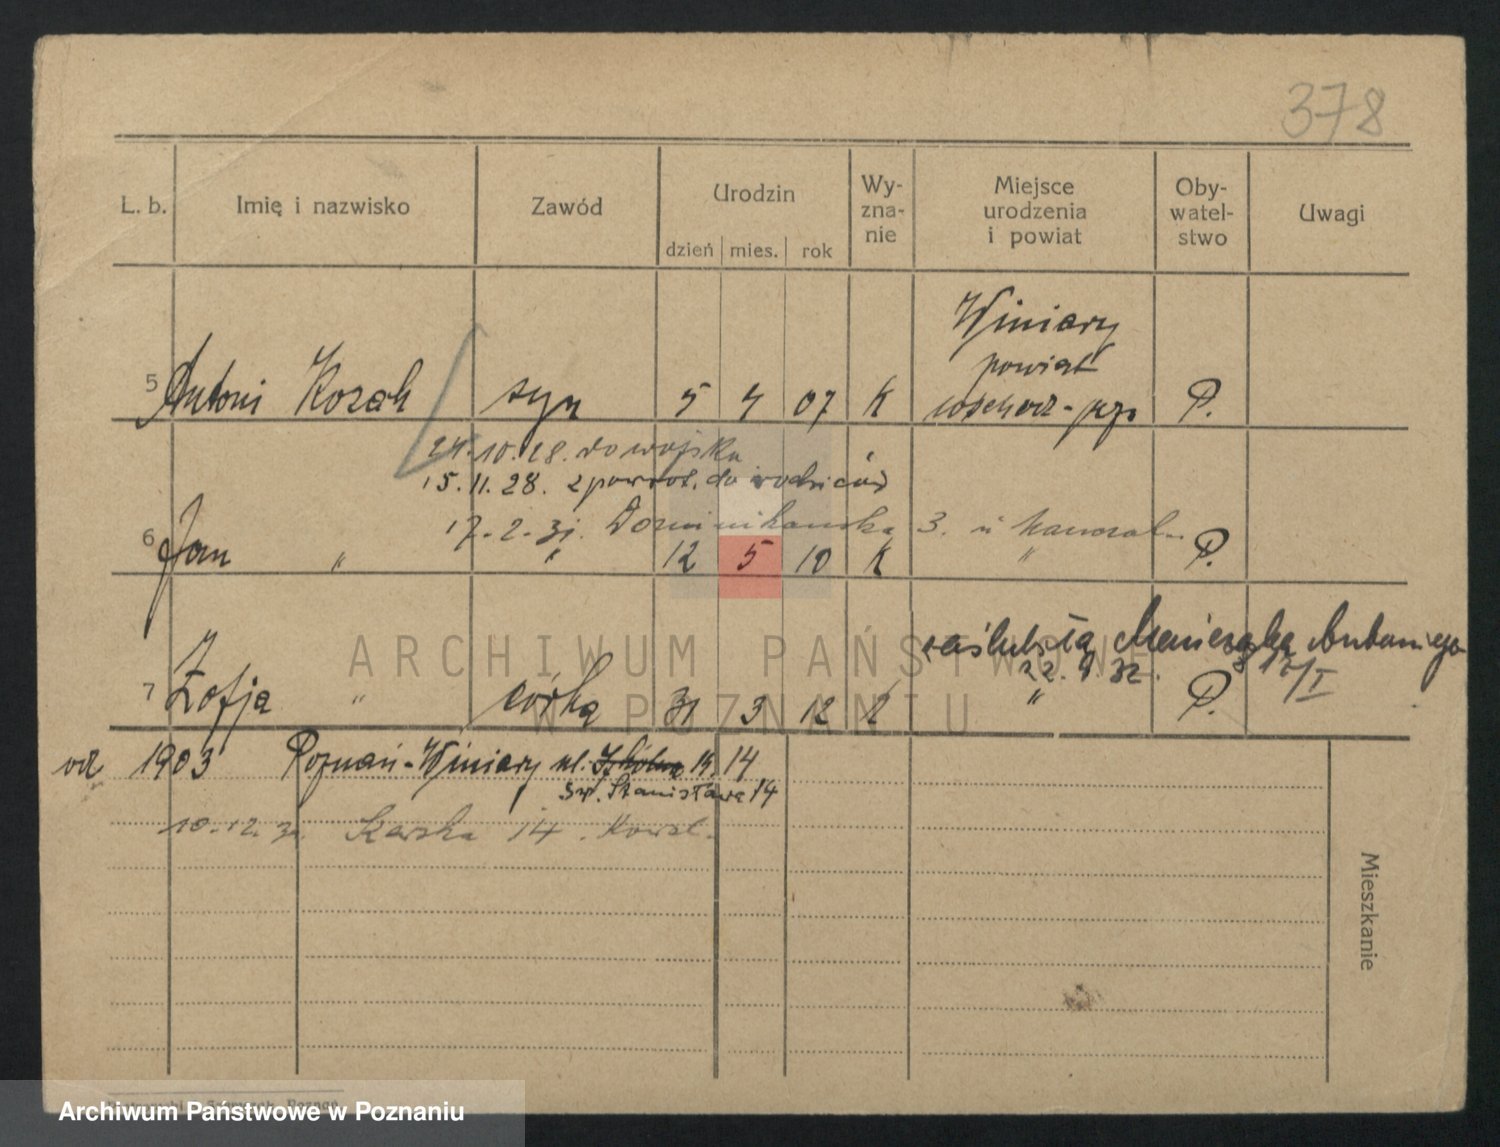 378
L. b. Imię i nazwisko Zawód Urodzin Wy-zna-nie Miejsce urodzenia i powiat Oby-watel-stwo Uwagi
dzień mies. rok
Winiary
powiat
5 Antoni Kozak syn 5 4 07 K P.
24.10.28. do wojska
15.11.28. z powrot. do rodziców
17.2.31. Dominikańska 3. u
6 Jan " " 12 5 10 K " P.
zaślubiła Antoniego
22.9.32. 17/I
7 Zofja " córka 31 3 12 K " P.
od 1903 Poznań-Winiary ul. Szkolna 14
św. Stanisława 14
10.12. 14
Mieszkanie
ARCHIWUM PAŃSTWOWE
W POZNANIU
Archiwum Państwowe w Poznaniu